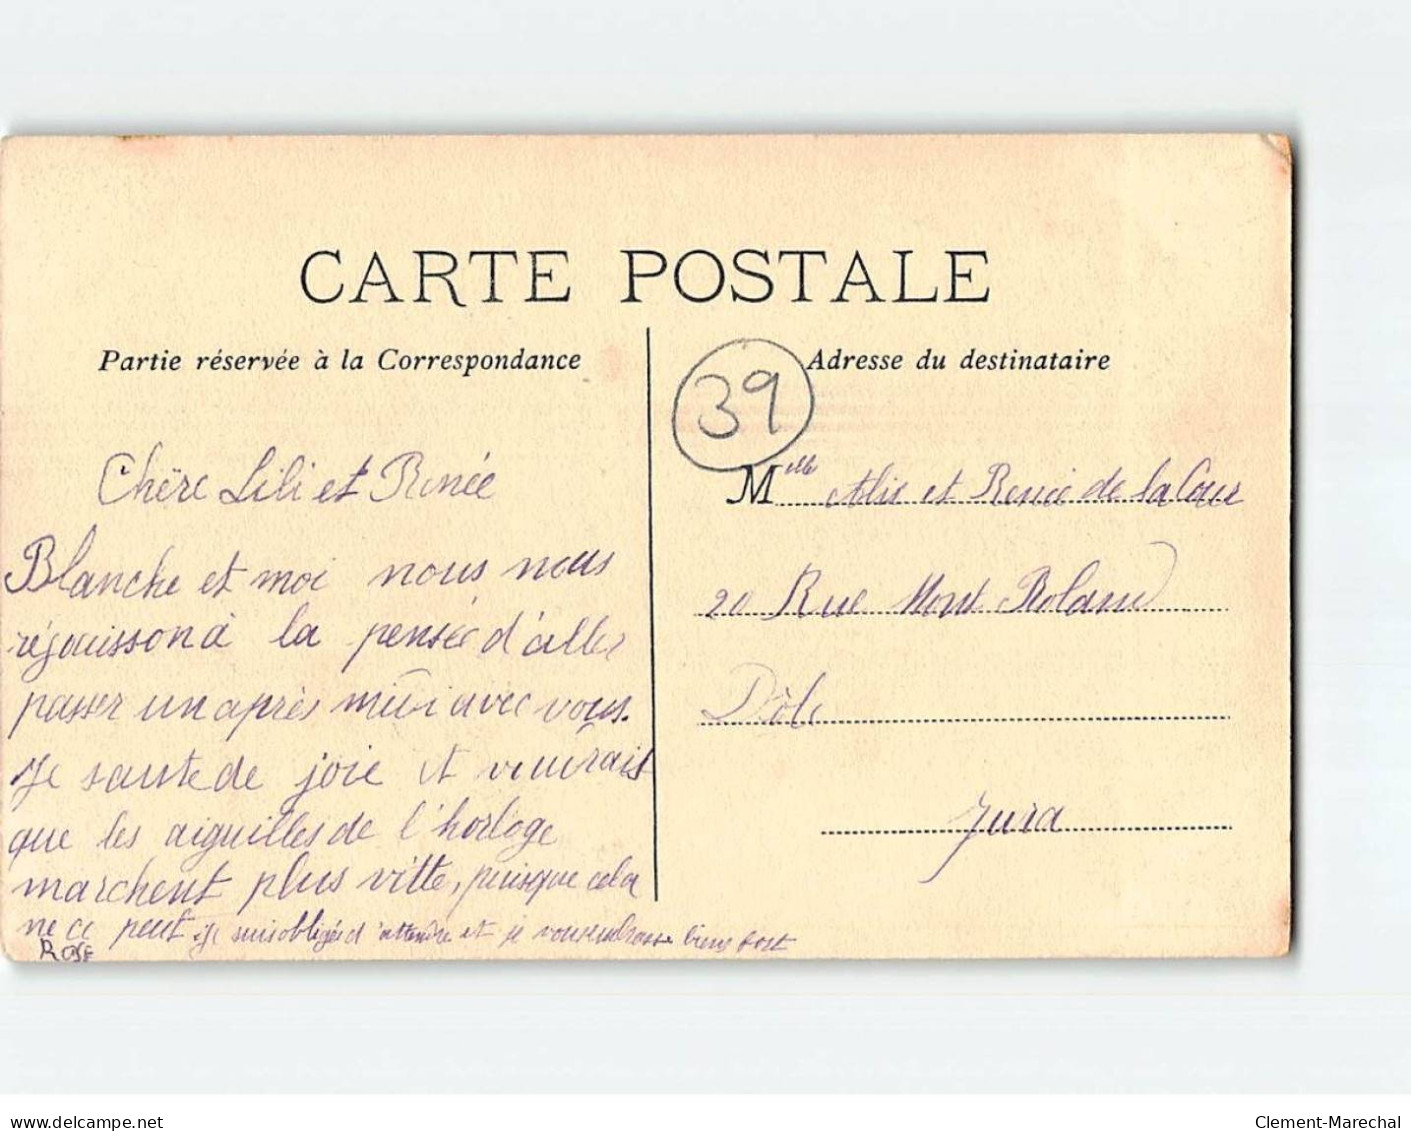 CARTE POSTALE
Partie réservée à la Correspondance
Chëre Lili et Renée
Blanche et moi nous nous
réjouisson à la pensée d'aller
passer un après midi avec vous.
Je saute de joie et voudrais
que les aiguilles de l'horloge
marchent plus vitte, puisque cela
ne ce peut je suis obligée d'attendre et je vous embrasse biens fort
Rose
39
Adresse du destinataire
Mlle Alis et Renée de la Cour
20 Rue Mont Roland
Dôle
Jura
www.delcampe.net
Clement-Marechal